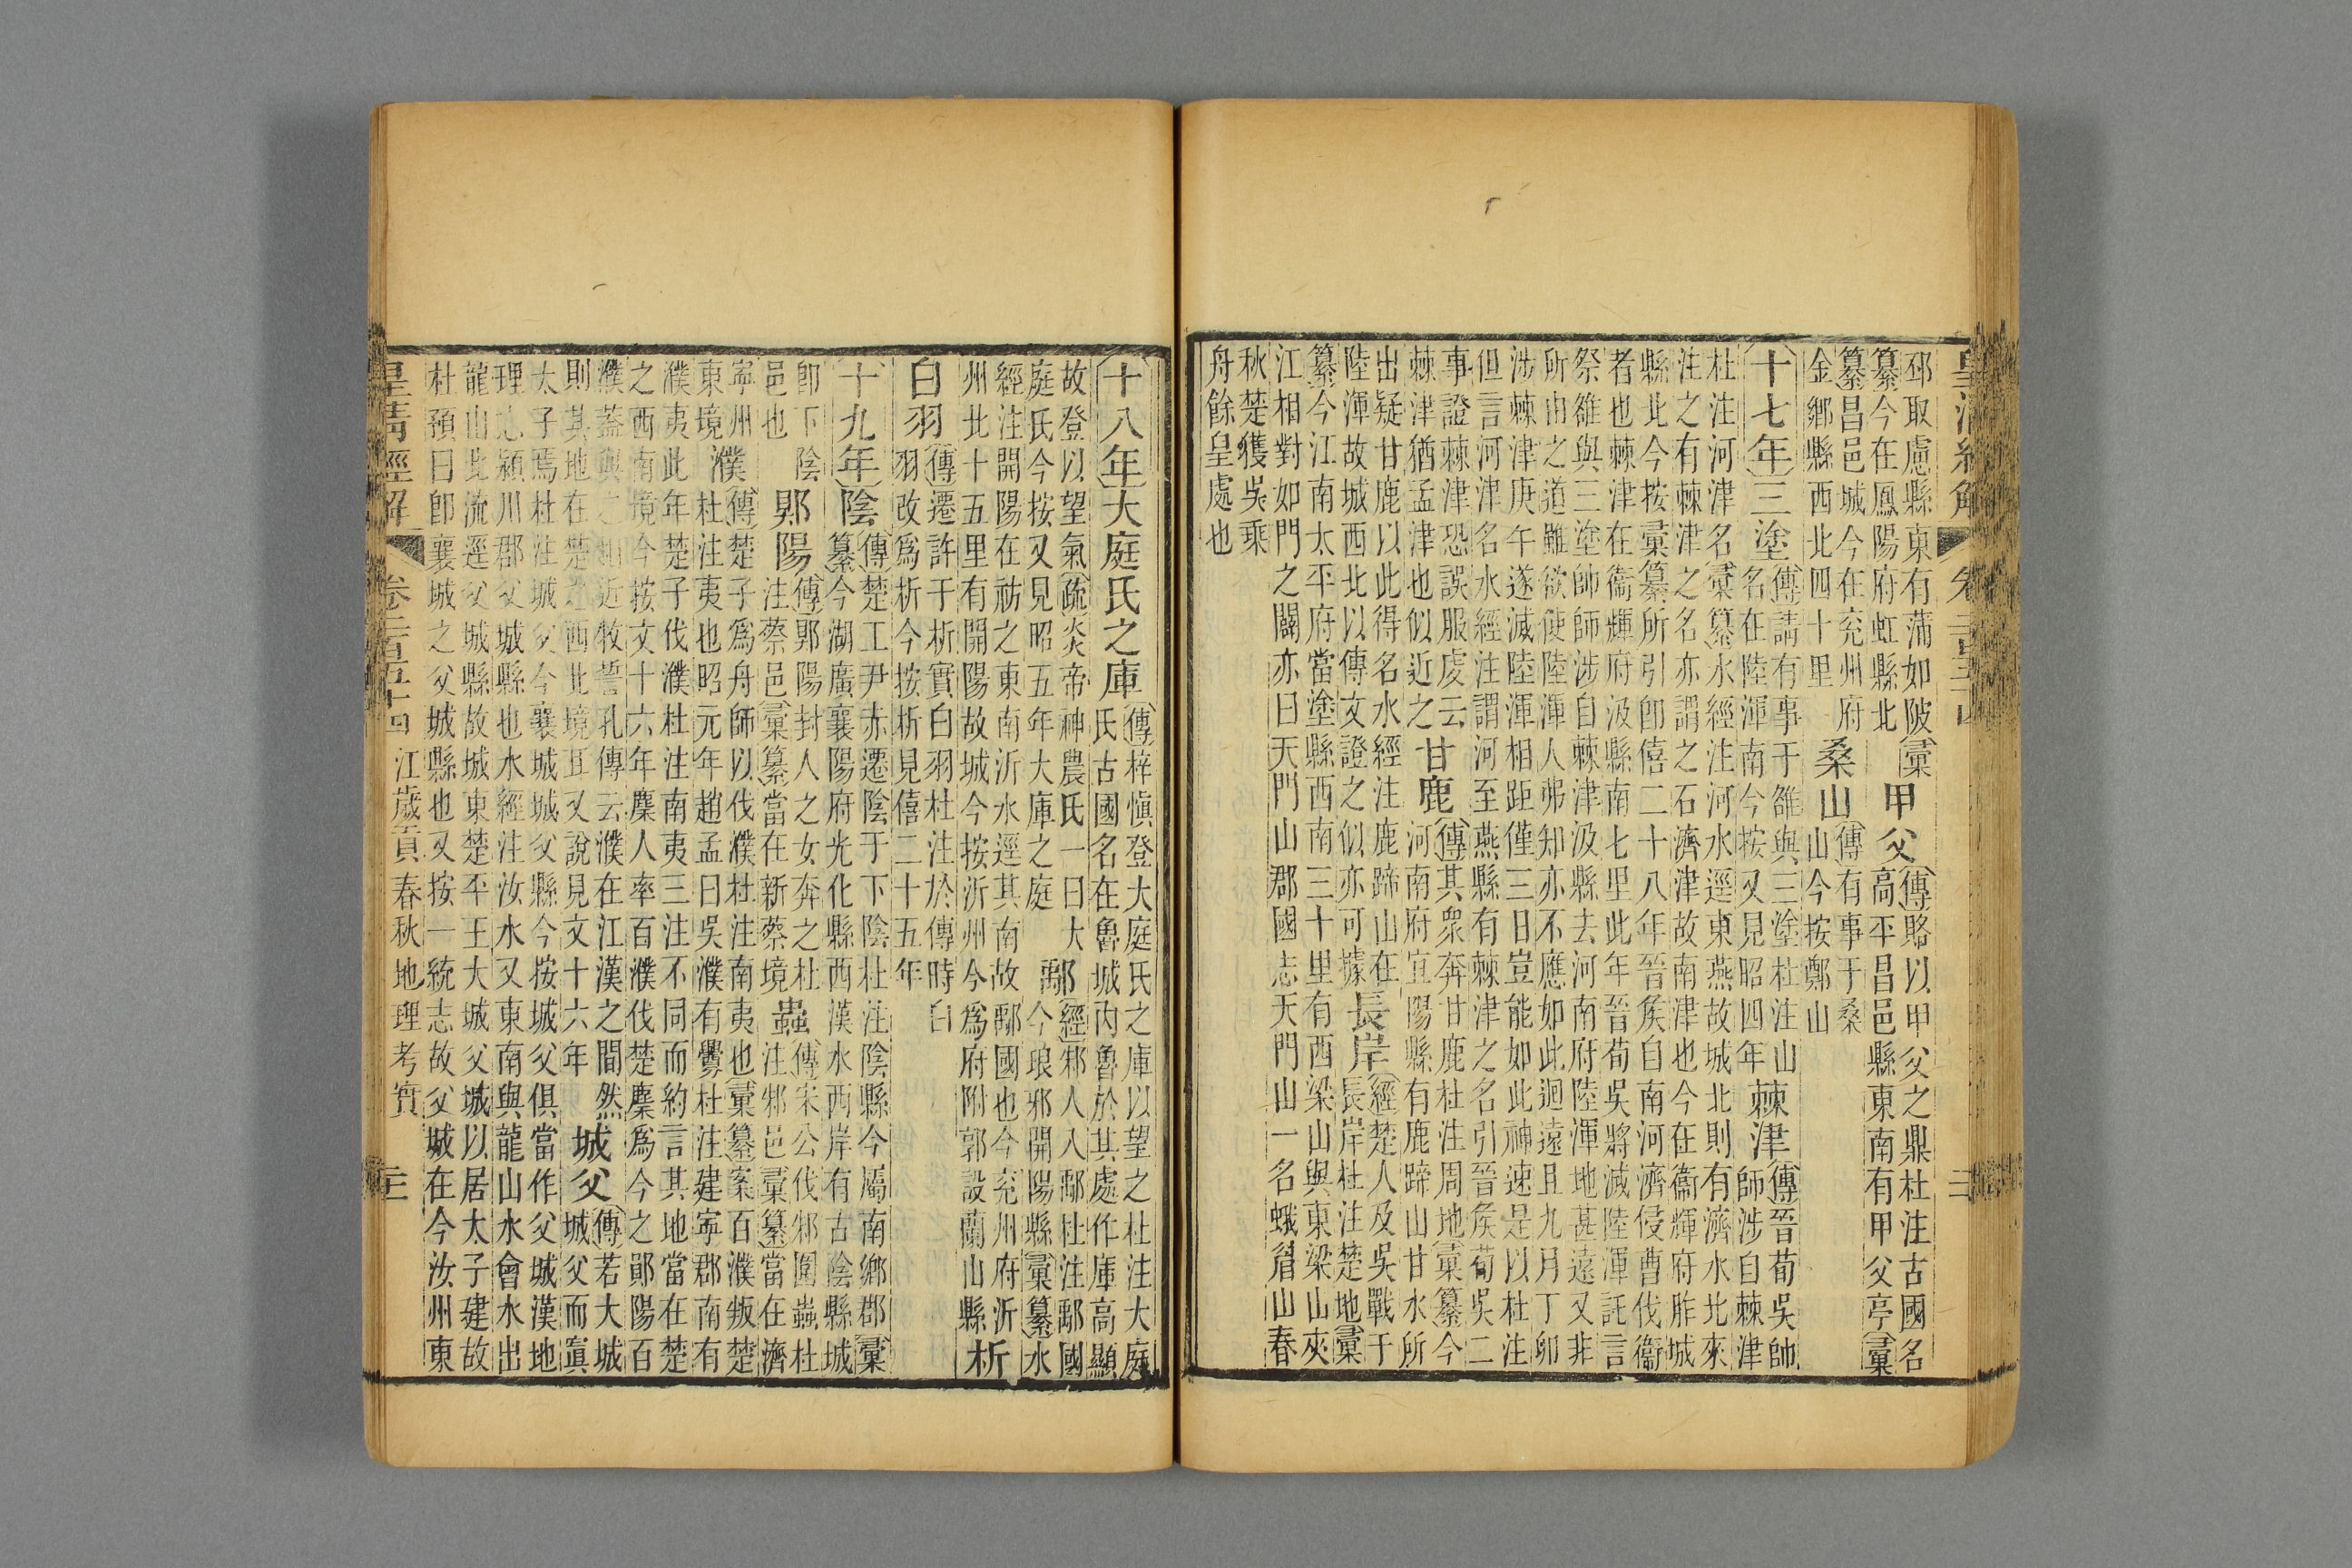 邳取慮縣東有蒲如陂彚
纂今在鳳陽府虹縣北
甲父
傳賂以甲父之鼎杜注古國名
高平昌邑縣東南有甲父亭彚
纂昌邑城今在兖州府
金鄉縣西北四十里
桑山
傳有事于桑
山今按鄭山
十七年三塗
傳請有事于雒與三塗杜注山
名在陸渾南今按又見昭四年
棘津
傳晉荀吳帥
師涉自棘津
杜注河津名彚纂水經注河水逕東燕故城北則有濟水北來
注之有棘津之名亦謂之石濟津故南津也今在衞輝府胙城
縣北今按彚纂所引卽僖二十八年晉矦自南河濟侵曹伐衞
者也棘津在衞輝府汲縣南七里此年晉荀吳將滅陸渾託言
祭雒與三塗帥師涉自棘津汲縣去河南府陸渾地甚遠又非
所由之道雖欲使陸渾人弗知亦不應如此迥遠且九月丁卯
涉棘津庚午遂滅陸渾相距僅三日豈能如此神速是以杜注
但言河津名水經注謂河至燕縣有棘津之名引晉矦荀吳二
事證棘津恐誤服虔云
棘津猶孟津也似近之
甘鹿
傳其衆奔甘鹿杜注周地彚纂今
河南府宜陽縣有鹿蹄山甘水所
出疑甘鹿以此得名水經注鹿蹄山在
陸渾故城西北以傳文證之似亦可據
長岸
經楚人及吳戰于
長岸杜注楚地彚
纂今江南太平府當塗縣西南三十里有西梁山與東梁山夾
江相對如門之闢亦曰天門山郡國志天門山一名蛾眉山春
秋楚獲吳乘
舟餘皇處也
十八年大庭氏之庫
傳梓愼登大庭氏之庫以望之杜注大庭
氏古國名在魯城內魯於其處作庫高顯
故登以望氣疏炎帝神農氏一曰大
庭氏今按又見昭五年大庫之庭
鄅
經邾人入鄅杜注鄅國
今琅邪開陽縣彚纂水
經注開陽在祊之東南沂水逕其南故鄅國也今兖州府沂
州北十五里有開陽故城今按沂州今爲府附郭設蘭山縣
析
白羽
傳遷許于析實白羽杜注於傳時白
羽改爲析今按析見僖二十五年
十九年陰
傳楚工尹赤遷陰于下陰杜注陰縣今屬南鄉郡彚
纂今湖廣襄陽府光化縣西漢水西岸有古陰縣城
卽下陰
邑也
郹陽
傳郹陽封人之女奔之杜
注蔡邑彚纂當在新蔡境
蟲
傳宋公伐邾圍蟲杜
注邾邑彚纂當在濟
寧州
東境
濮
傳楚子爲舟師以伐濮杜注南夷也彚纂案百濮叛楚
杜注夷也昭元年趙孟曰吳濮有釁杜注建寧郡南有
濮夷此年楚子伐濮杜注南夷三注不同而約言其地當在楚
之西南境今按文十六年麇人率百濮伐楚麇爲今之鄖陽百
濮蓋與之相近牧誓孔傳云濮在江漢之間然
則其地在楚之西北境耳又說見文十六年
城父
傳若大城
城父而寘
太子焉杜注城父今襄城城父縣今按城父俱當作父城漢地
理志潁川郡父城縣也水經注汝水又東南與龍山水會水出
龍山北流逕父城縣故城東楚平王大城父城以居太子建故
杜預曰卽襄城之父城縣也又按一統志故父城在今汝州東
皇清經解 卷二百五十四 江歲貢春秋地理考實 三